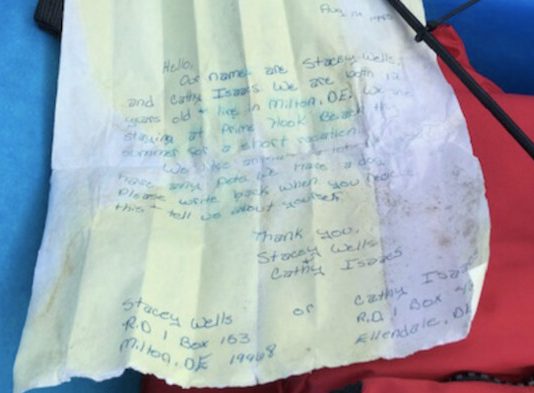 Hello,
Our names are Stacey Wells
and Cathy Isaacs. We are both
years old + live in Milton, DE. We are
staying at Prime Hook Beach this
summer for a short vacation.
We like
have any pets we have a dog.
Please write back when you recieve
this + tell us about yourself.
Thank you,
Stacey Wells
+
Cathy Isaacs
Stacey Wells
R.D 1 Box 153
Milton, DE 19968
or
Cathy Isaac
R.D. 1 Box
Ellendale, D